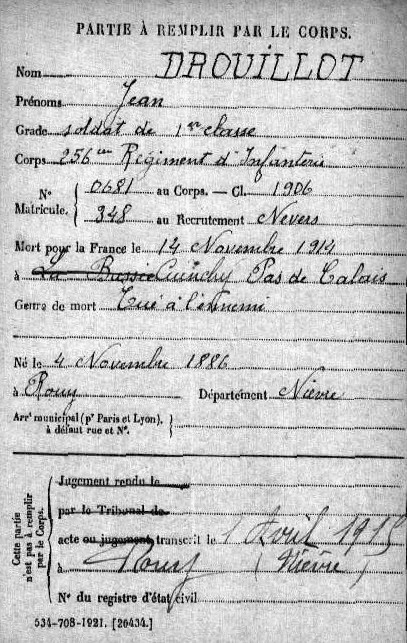 PARTIE À REMPLIR PAR LE CORPS.
Nom DROUILLOT
Prénoms Jean
Grade soldat de 1re classe
Corps 256me Régiment d'Infanterie
N° Matricule. { 0681 au Corps. — Cl. 1906
348 au Recrutement Nevers
Mort pour la France le 14 Novembre 1914
à La Bassée Cuinchy Pas de Calais
Genre de mort Tué à l'ennemi
Né le 4 Novembre 1886
à Rouy Département Nièvre
Arrt municipal (pr Paris et Lyon), à défaut rue et N°. }
Cette partie n'est pas à remplir par le Corps.
Jugement rendu le
par le Tribunal de
acte ou jugement transcrit le 1 Avril 1915
à Rouy (Nièvre)
N° du registre d'état civil
534-708-1921. [26434.]